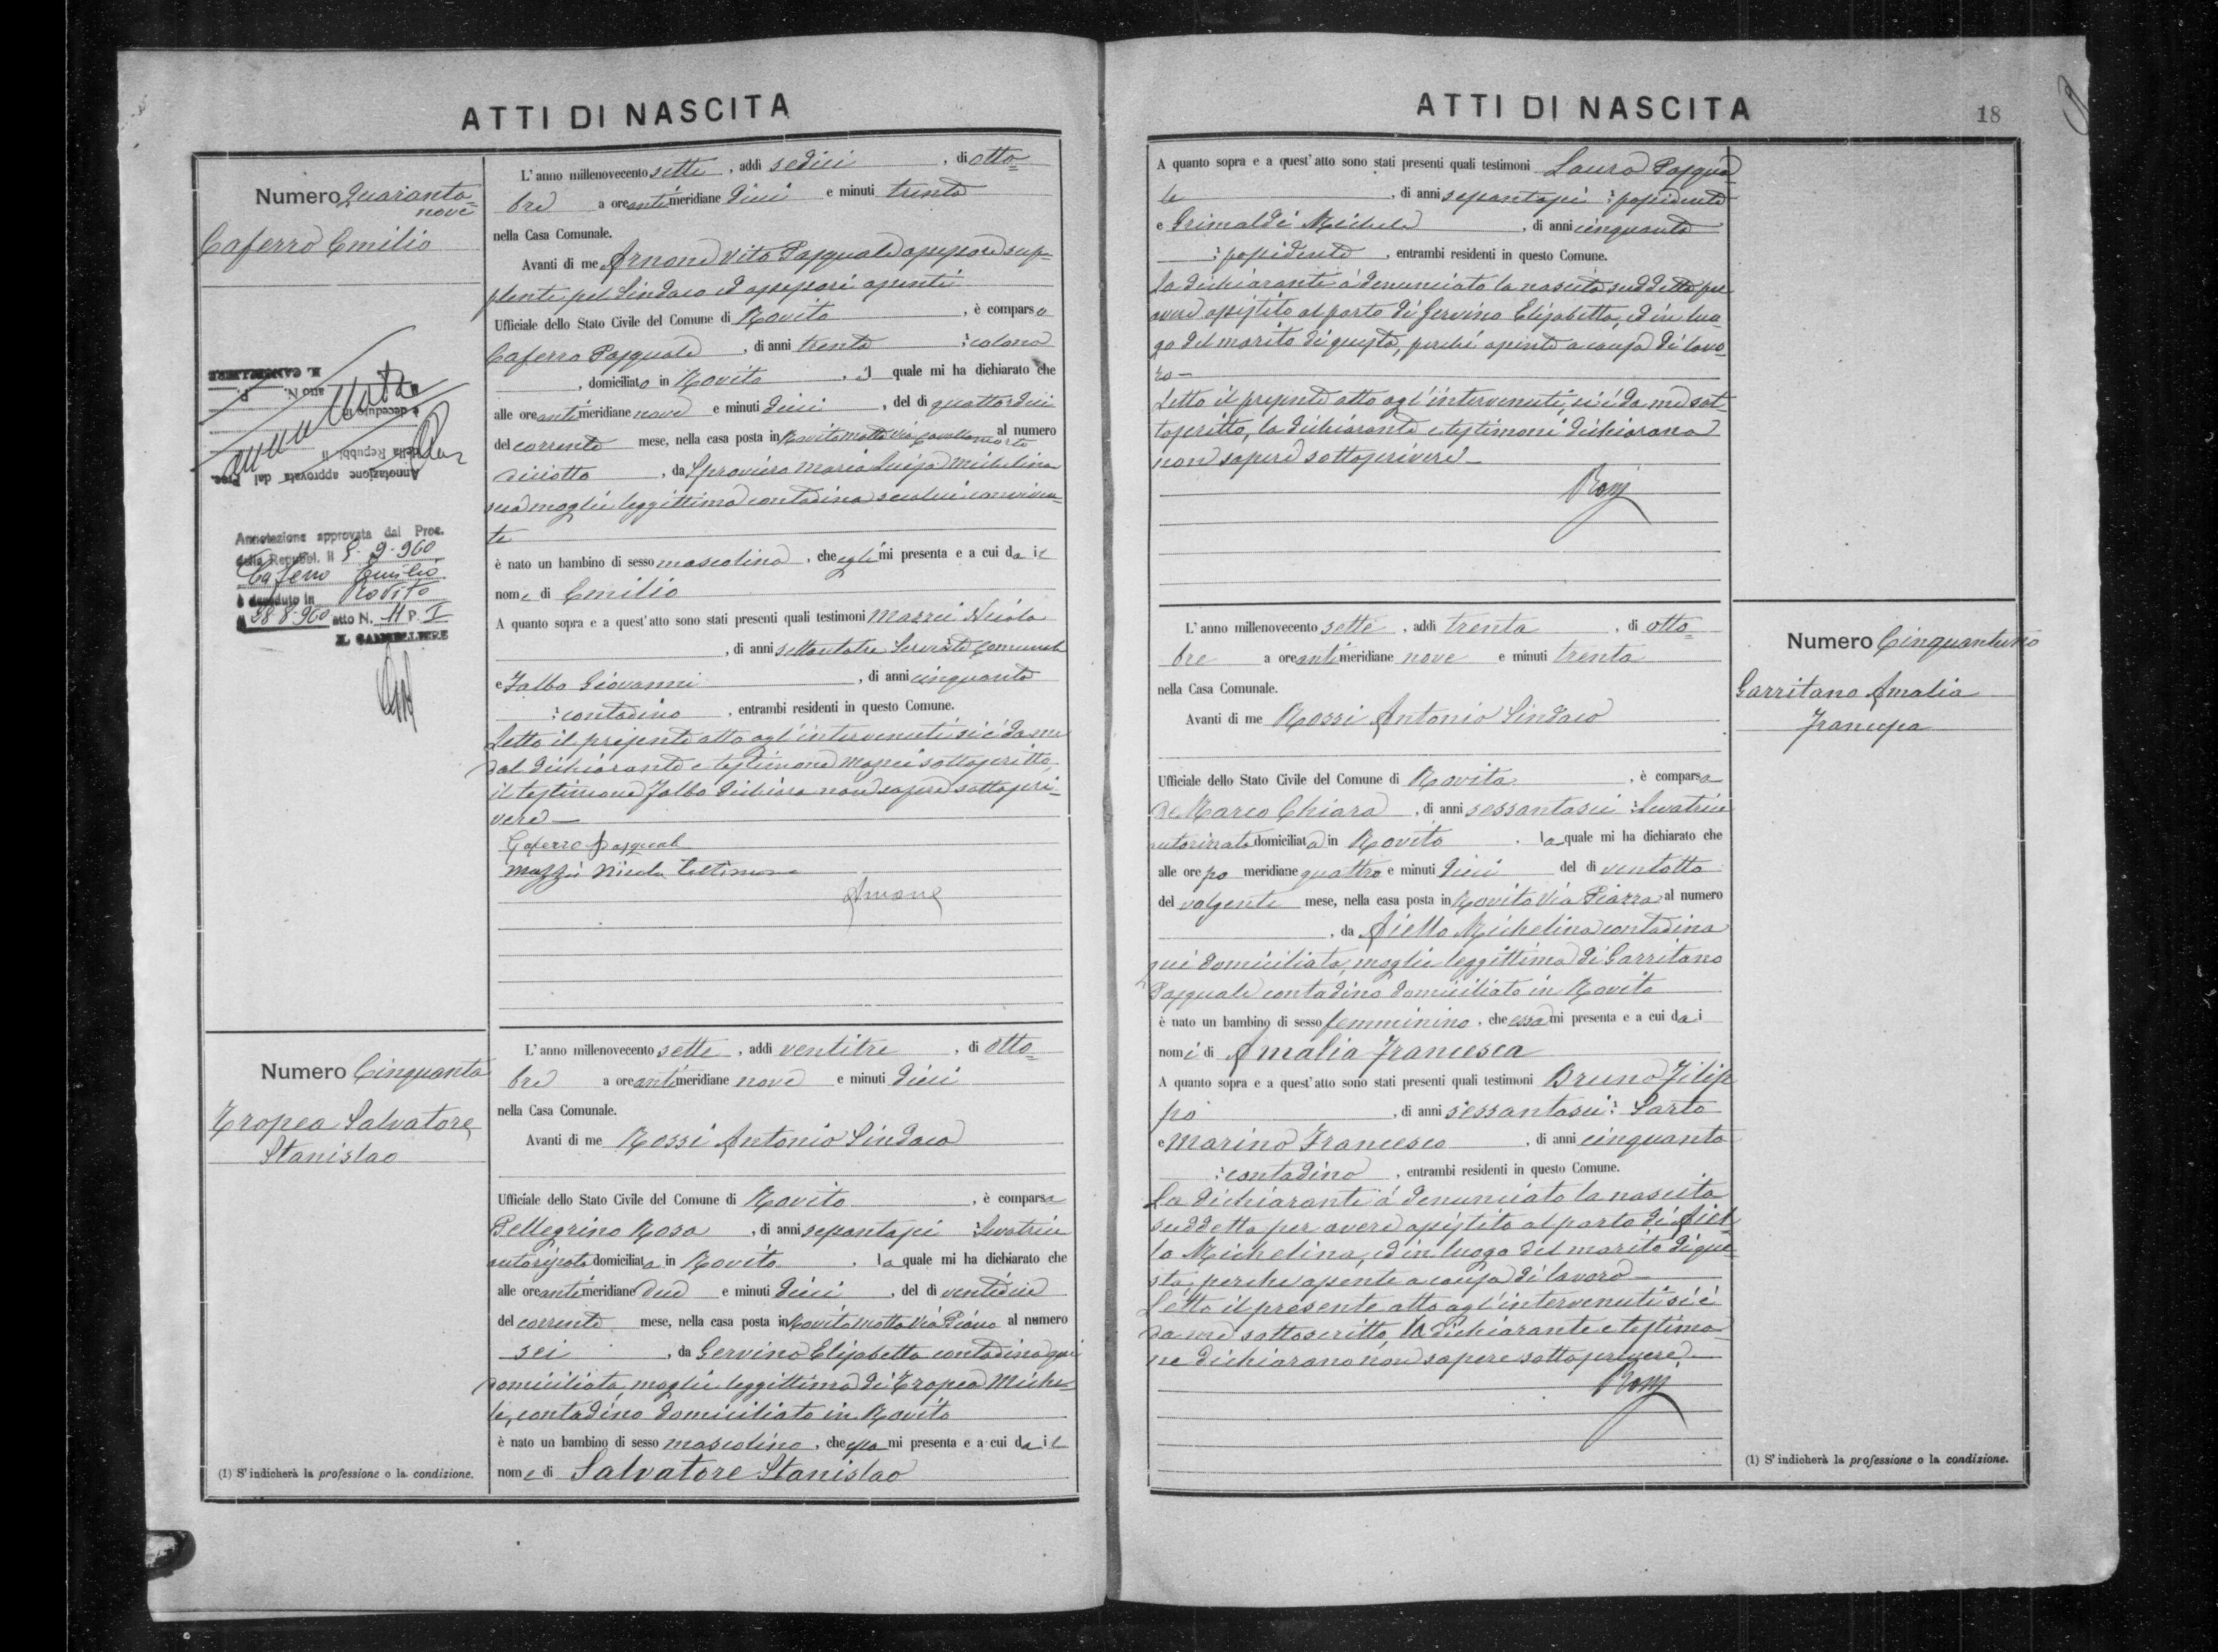 ATTI DI NASCITA
Numero Quaranta=
nove
Caferro Emilio
Annotazione approvata dal Proc.
della Repubbl. li
è deceduto in
atto N. P.
IL CANCELLIERE
Annotazione approvata dal Proc.
della Repubbl. li 8-9-960
Caferro Emilio
è deceduto in Rovito
il 28-8-960 atto N. 11 P. I
IL CANCELLIERE
L'anno millenovecento sette, addi sedici, di otto=
bre a ore antimeridiane dieci e minuti trenta
nella Casa Comunale.
Avanti di me Arnone Vito Pasquale assessore sup=
plente pel Sindaco ed assessori assenti
Ufficiale dello Stato Civile del Comune di Rovito, è comparso
Caferro Pasquale, di anni trenta : colono
, domiciliato in Rovito, il quale mi ha dichiarato che
alle ore antimeridiane nove e minuti dieci, del di quattordici
del corrente mese, nella casa posta in Rovito Motta Via al numero
diciotto, da Sproviero Maria Luisa Michelina
sua moglie leggittima contadina secolui conviven=
te
è nato un bambino di sesso mascolino, che egli mi presenta e a cui da il
nome di Emilio
A quanto sopra e a quest'atto sono stati presenti quali testimoni Mazzei Nicola
, di anni settantatre Serviente Comunale
e Falbo Giovanni, di anni cinquanta
: contadino, entrambi residenti in questo Comune.
Letto il presente atto agl'intervenuti si è da me
dal dichiarante e testimone Mazzei sottoscritto,
il testimone Falbo dichiara non sapere sottoscri=
vere—
Caferro Pasquale
Mazzei Nicola testimone
Arnone
Numero Cinquanta
Tropea Salvatore
Stanislao
L'anno millenovecento sette, addi ventitre, di otto=
bre a ore antimeridiane nove e minuti dieci
nella Casa Comunale.
Avanti di me Rossi Antonio Sindaco
Ufficiale dello Stato Civile del Comune di Rovito, è comparsa
Pellegrino Rosa, di anni sessantasei : Levatrice
autorizzata domiciliata in Rovito, la quale mi ha dichiarato che
alle ore antimeridiane due e minuti dieci, del di ventidue
del corrente mese, nella casa posta in Rovito Motta Via Piano al numero
sei, da Gervino Elisabetta contadina qui
domiciliata, moglie leggittima di Tropea Miche=
le, contadino domiciliato in Rovito
è nato un bambino di sesso mascolino, che essa mi presenta e a cui da il
nome di Salvatore Stanislao
(1) S'indicherà la professione o la condizione.
ATTI DI NASCITA
18
A quanto sopra e a quest'atto sono stati presenti quali testimoni Lauro Pasqua=
le, di anni sessantasei : possidente
e Grimaldi Michele, di anni cinquanta
: possidente, entrambi residenti in questo Comune.
La dichiarante à denunciato la nascita suddetta per
avere assistito al parto di Gervino Elisabetta, ed in luo=
go del marito di questa, perché assente a causa di lavo=
ro—
Letto il presente atto agl'intervenuti, si è da me sot=
toscritto, la dichiarante e testimoni dichiarano
non sapere sottoscrivere—
Rossi
Numero Cinquantuno
Garritano Amalia
Francesca
L'anno millenovecento sette, addi trenta, di otto=
bre a ore antimeridiane nove e minuti trenta
nella Casa Comunale.
Avanti di me Rossi Antonio Sindaco
Ufficiale dello Stato Civile del Comune di Rovito, è comparsa
De Marco Chiara, di anni sessantasei : Levatrice
autorizzata domiciliata in Rovito, la quale mi ha dichiarato che
alle ore po meridiane quattro e minuti dieci del di ventotto
del volgente mese, nella casa posta in Rovito Via Piazza al numero
, da Aiello Michelina contadina
qui domiciliata, moglie leggittima di Garritano
Pasquale contadino domiciliato in Rovito
è nato un bambino di sesso femminino, che essa mi presenta e a cui da i
nomi di Amalia Francesca
A quanto sopra e a quest'atto sono stati presenti quali testimoni Bruno Filip
po, di anni sessantasei : Sarto
e Marino Francesco, di anni cinquanta
: contadino, entrambi residenti in questo Comune.
La dichiarante à denunciato la nascita
suddetta per avere assistito al parto di Aiel=
lo Michelina, ed in luogo del marito di que=
sta, perche assente a causa di lavoro—
Letto il presente atto agl'intervenuti si è
da me sottoscritto, la dichiarante e testimo=
ne dichiarano non sapere sottoscrivere.—
Rossi
(1) S'indicherà la professione o la condizione.